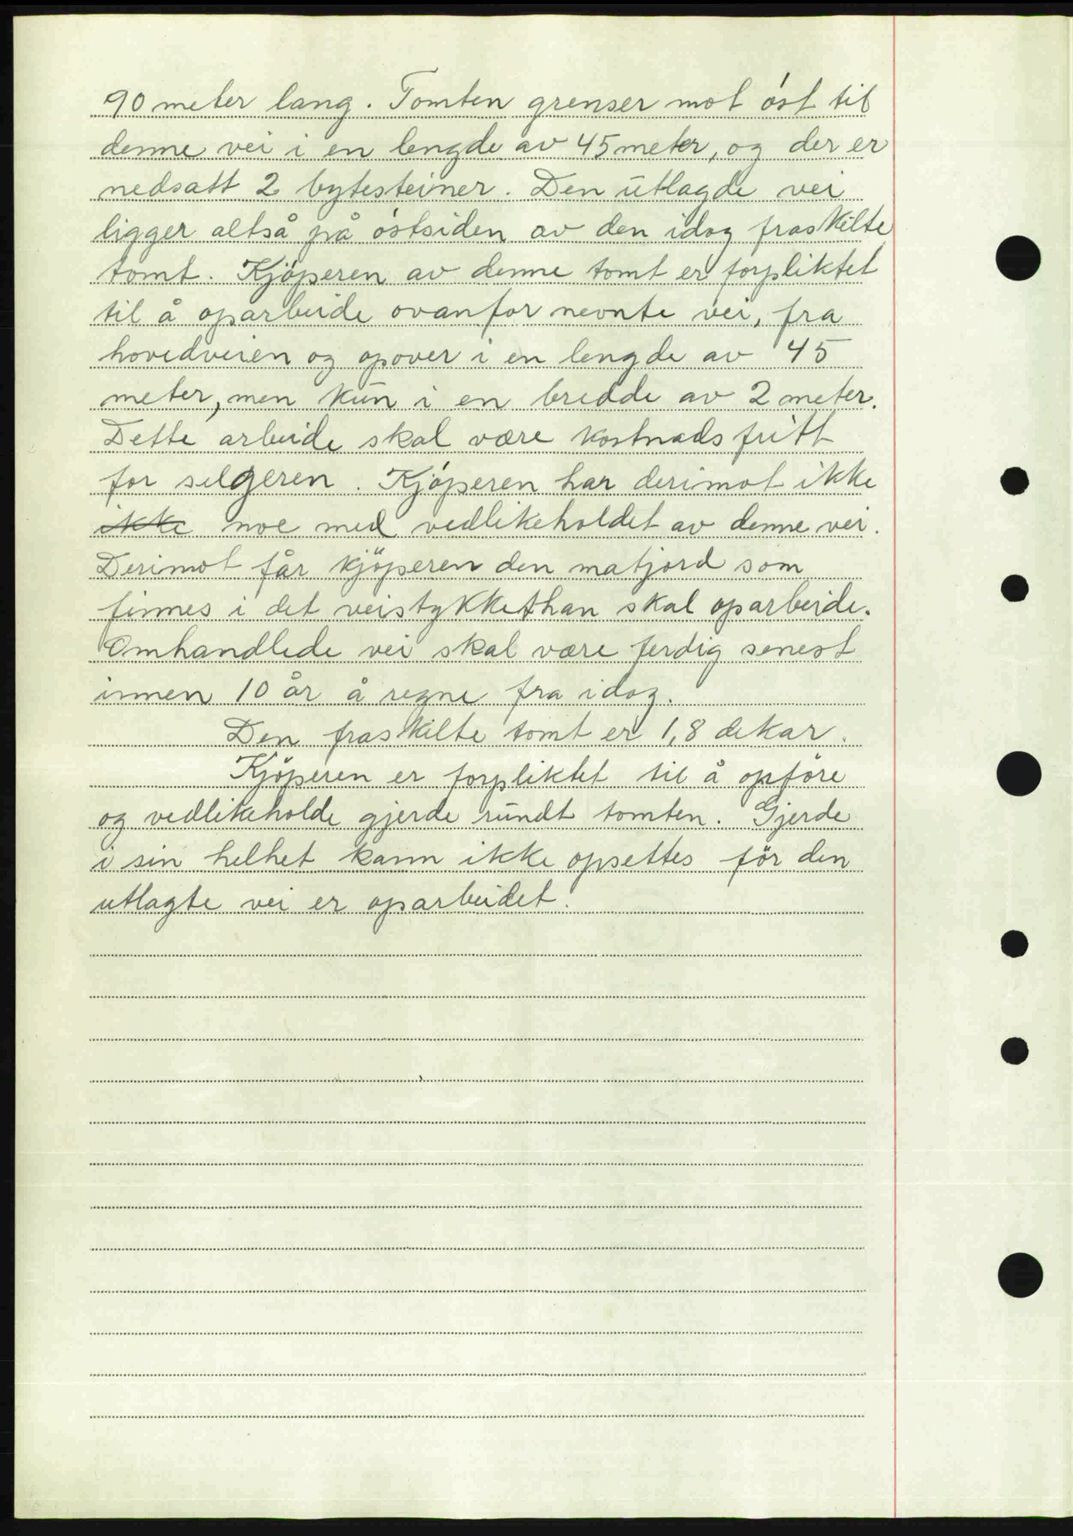 90 meter lang. Tomten grenser mot öst til
denne vei i en lengde av 45 meter, og der er
nedsatt 2 bytesteiner. Den utlagde vei
ligger altså på östsiden av den idag fraskilte
tomt. Kjöperen av denne tomt er forpliktet
til å oparbeide ovanfor nevnte vei, fra
hovedveien og opover i en lengde av 45
meter, men kun i en bredde av 2 meter.
Dette arbeide skal være kostnadsfritt
for selgeren. Kjöperen har derimot ikke
ikke noe med vedlikeholdet av denne vei.
Derimot får kjöperen den matjord som
finnes i det veistykket han skal oparbeide.
Omhandlede vei skal være ferdig senest
innen 10 år å regne fra idag.
Den fraskilte tomt er 1,8 dekar.
Kjöperen er forpliktet til å opföre
og vedlikeholde gjerde rundt tomten. Gjerde
i sin helhet kann ikke opsettes för den
utlagte vei er oparbeidet.